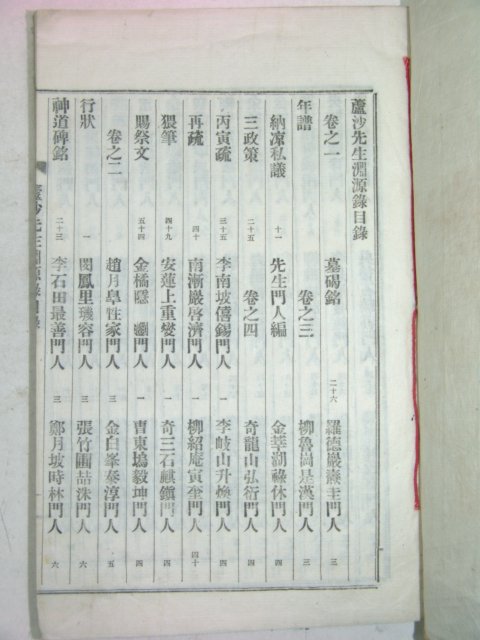 蘆沙先生淵源錄目錄
卷之一 墓碣銘 二十六 羅德巖燾圭門人 三
年譜 卷之三 柳魯嵒是漢門人 三
納凉私議 十一 先生門人編 金莘湖祿休門人 四
三政策 二十五 卷之四 奇龍山弘衍門人 四
丙寅疏 三十五 李南坡僖錫門人 一 李岐山升煥門人 四
再疏 四十 南漸巖啓濟門人 一 柳紹庵寅奎門人 四十
猥筆 四十九 安蓮上重燮門人 一 奇三石麒鎭門人 四
賜祭文 五十四 金橋隱 門人 一 曺東塢毅坤門人 四
卷之二 趙月皐性家門人 三 金白峯泰淳門人 五
行狀 一 閔鳳里璣容門人 三 張竹圃喆洙門人 六
神道碑銘 二十三 李石田最善門人 三 鄭月坡時林門人 六
蘆沙先生淵源錄目錄